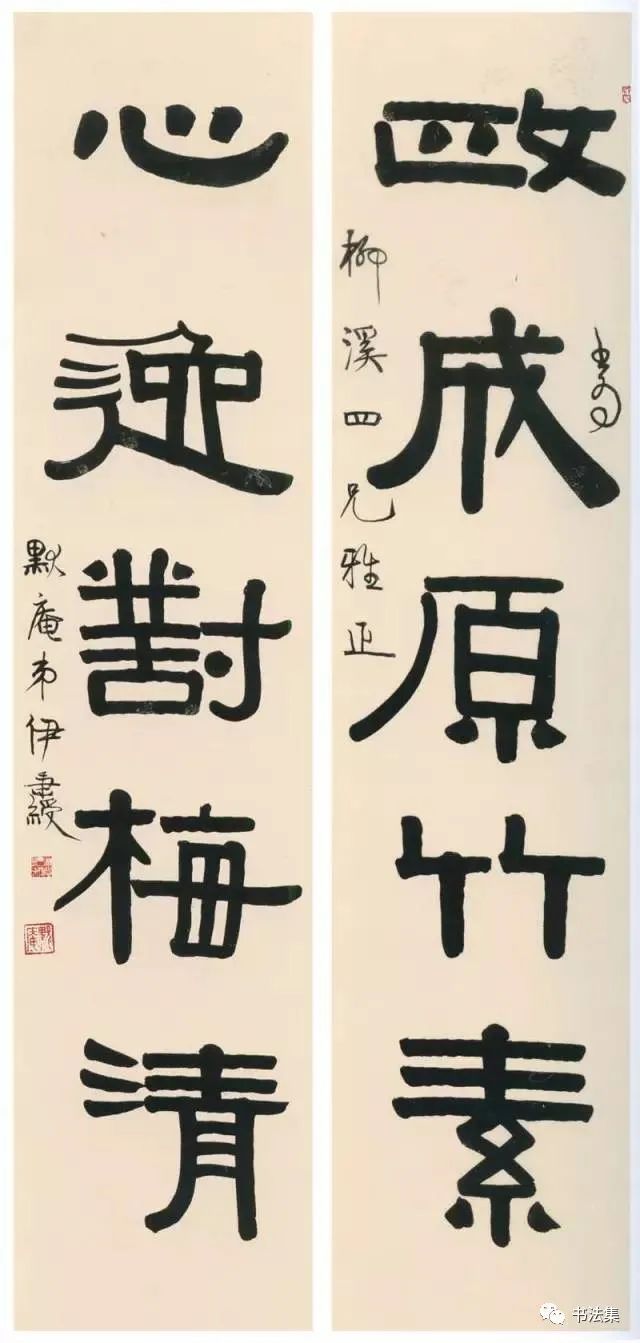 政成原竹素
書為
柳溪四兄雅正
心對梅清
默庵弟伊秉綬
书法集